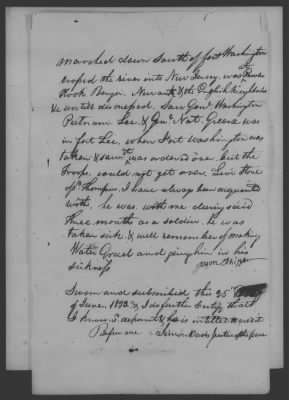 marched down South of fort Washington
crossed the river into New Jersey, was at Powles
Hook Bergen. Newark & the English Neighborhood
& until dismissed. Saw Genl Washington
Putnam Lee & Genl Natl. Greene was
in fort Lee, when Fort Washington was
taken & saw it was ordered over but the
troops could not get over. Levi Stone
of Thompson, I have always been acquainted
with, he was with me during said
three months as a soldier, he was
taken sick & well remember of making
Water Gruel and giving him in his
sickness
Sworn and subscribed this 25
of June, 1832 & I do further Certify that
I know deponent & he is intitled to credit
Before me Simon Davis Justice of the Peace